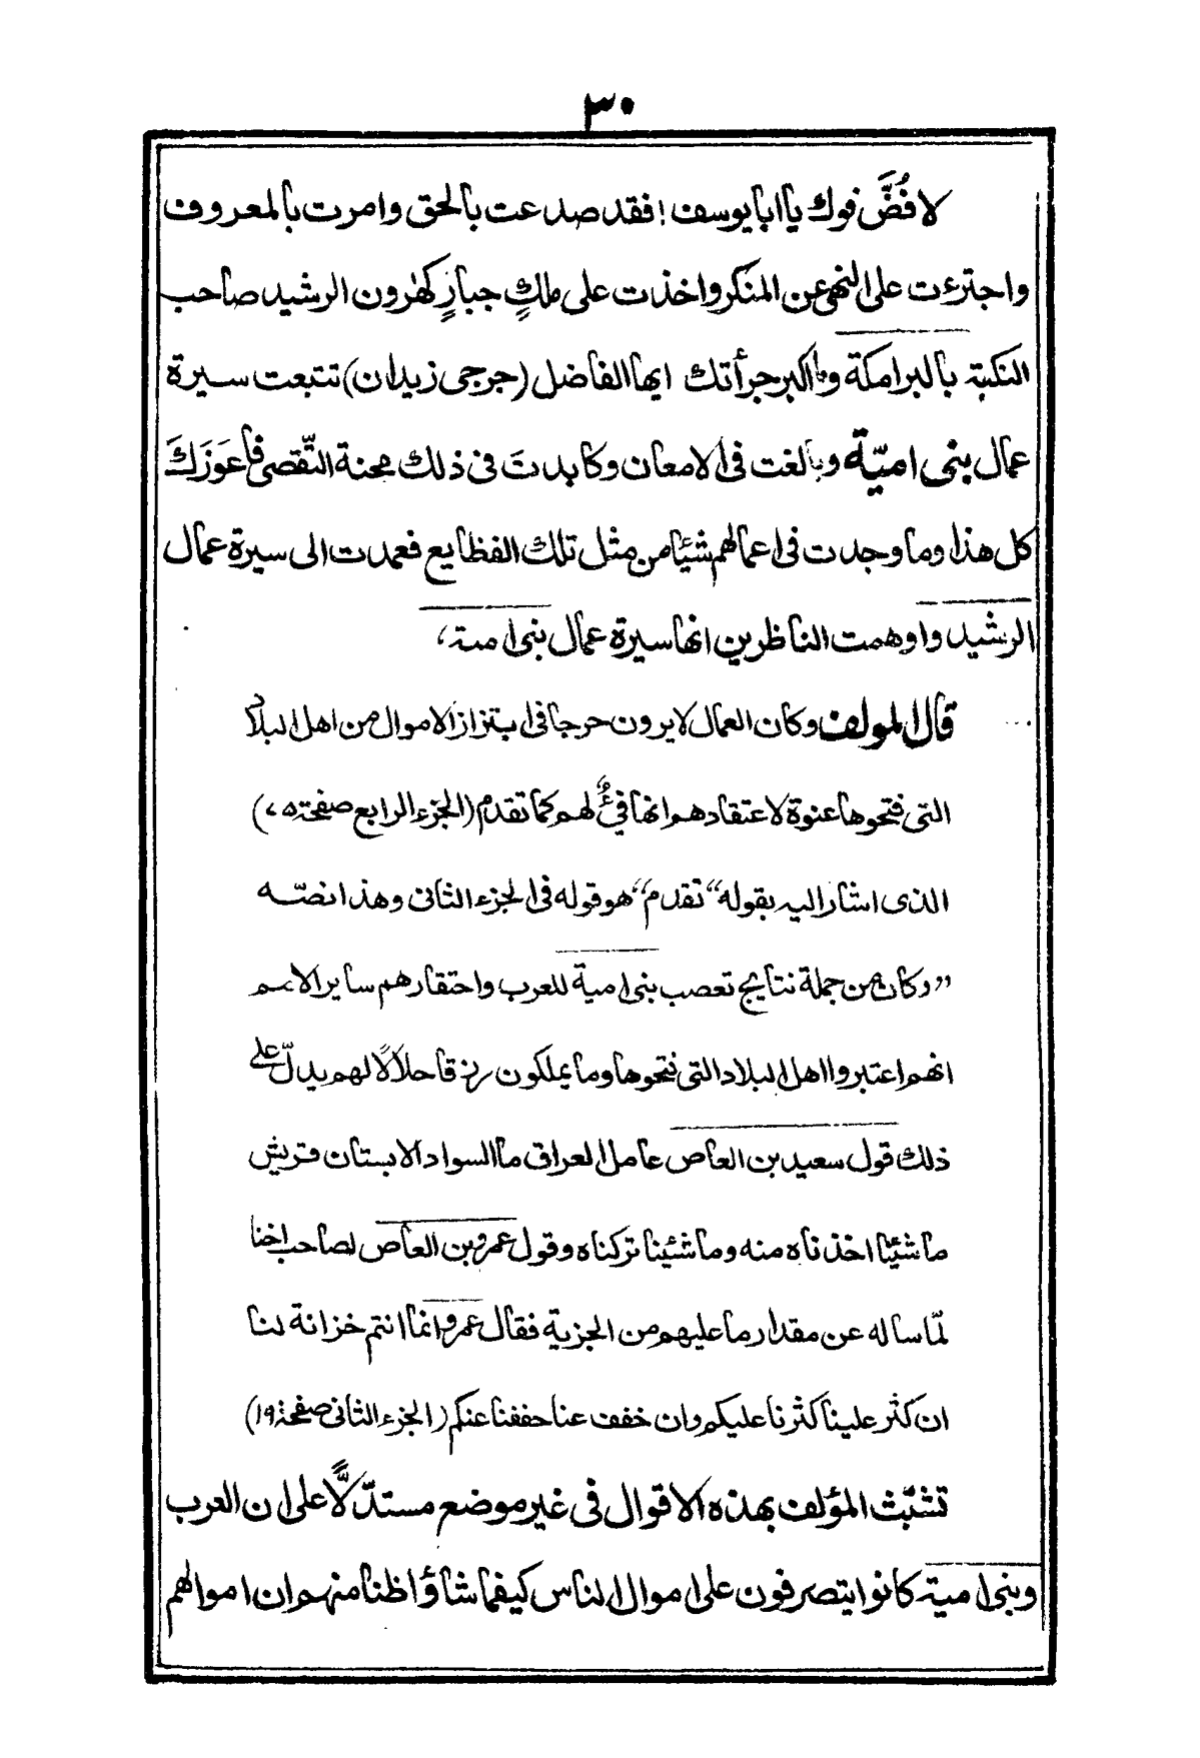 ٣٠
لا فُضَّ فوك يا ابا يوسف! فقد صدعت بالحق وامرت بالمعروف
واجترءت على النهى عن المنكر واخذت على ملكٍ جبارٍ كهٰرون الرشيد صاحب
النكبة بالبرامكة وما اكبر جرأتك ايها الفاضل (جرجى زيدان) تتبعت سيرة
عمال بنى اميّة وبالغت فى الامعان وكابدتَ فى ذلك محنة التّقصى فاعوَزَكَ
كل هذا وما وجدت فى اعمالهم شيئا من مثل تلك الفظايع فعمدت الى سيرة عمال
الرشيد واوهمت الناظرين انها سيرة عمال بنى امية،
قال المولف وكان العمال لا يرون حرجا فى ابتزاز الاموال من اهل البلاد
التى فتحوها عنوة لاعتقادهم انها فيئٌ لهم كما تقدم (الجزء الرابع صفحة ٧٥)
الذى اشار اليه بقوله “تقدم“ هو قوله فى الجزء الثانى وهذا نصّه
”وكان من جملة نتايج تعصب بنى امية للعرب واحتقارهم ساير الامم
انهم اعتبروا اهل البلاد التى فتحوها وما يملكون رزقا حلالاً لهم يدلّ على
ذلك قول سعيد بن العاص عامل العراق ما السواد الا بستان قريش
ما شئنا اخذناه منه وما شئنا تركناه وقول عمرو بن العاص لصاحب اخنا
لمّا ساله عن مقدار ما عليهم من الجزية فقال عمرو انما انتم خزانة لنا
ان كثر علينا كثرنا عليكم وان خفف عنا خففنا عنكم (الجزء الثانى صفحة ١٩)
تشبّث المؤلف بهذه الاقوال فى غير موضع مستدلًّا على ان العرب
وبنى امية كانوا يتصرفون على اموال الناس كيفما شاؤا ظنا منهم ان اموالهم